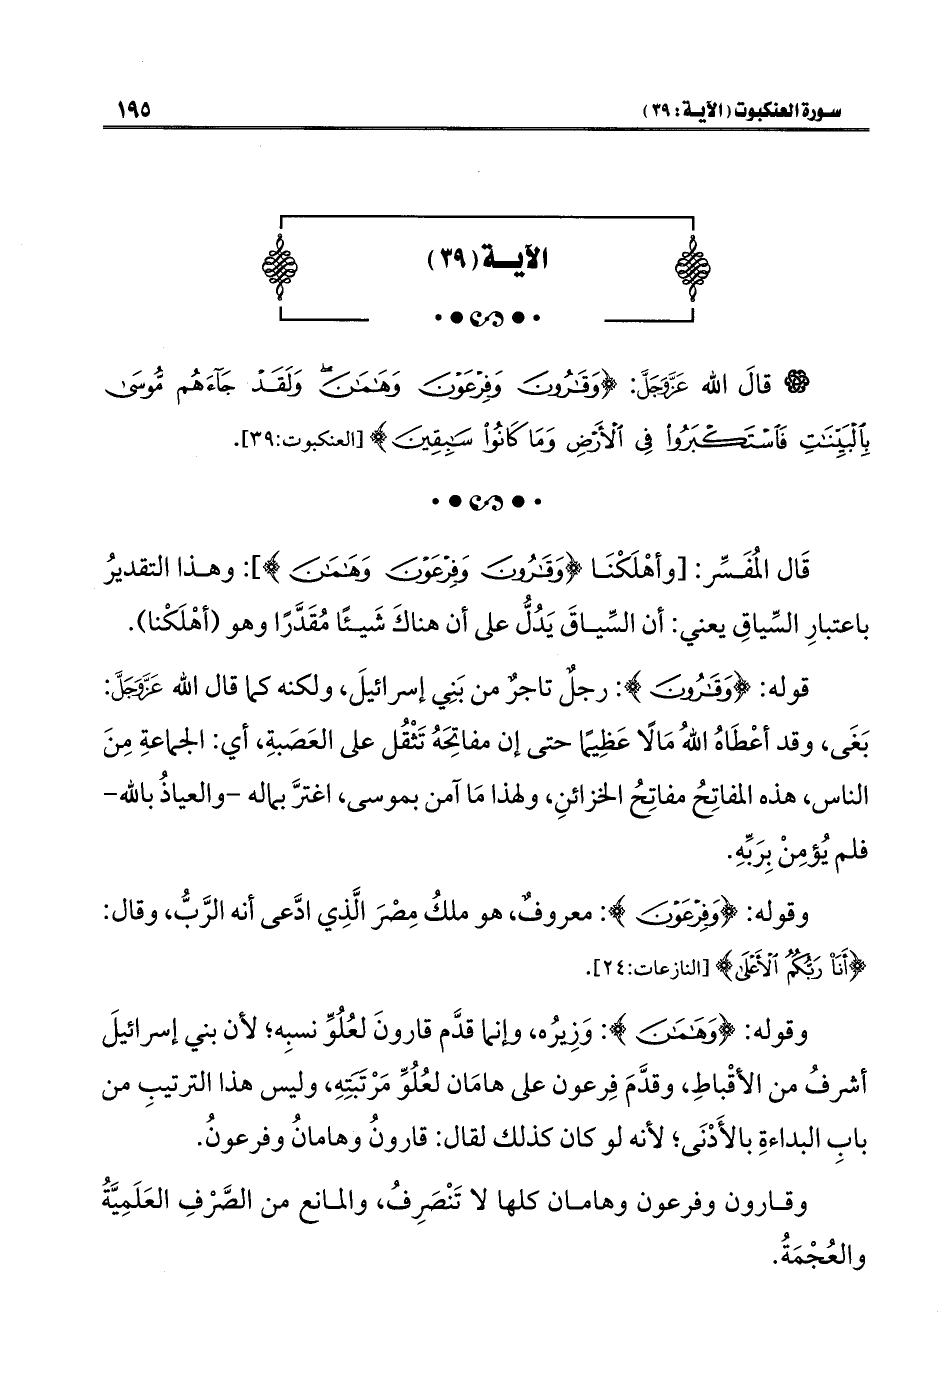 سورة العنكبوت (الآية: ٣٩) ١٩٥
الآية (٣٩)
قالَ الله عَزَّوَجَلَّ: ﴿وَقَٰرُونَ وَفِرْعَوْنَ وَهَٰمَٰنَ ۖ وَلَقَدْ جَآءَهُم مُّوسَىٰ
بِٱلْبَيِّنَٰتِ فَٱسْتَكْبَرُواْ فِى ٱلْأَرْضِ وَمَا كَانُواْ سَٰبِقِينَ﴾ [العنكبوت:٣٩].
قَال المُفَسِّر: [وأهْلَكْنَا ﴿وَقَٰرُونَ وَفِرْعَوْنَ وَهَٰمَٰنَ﴾]: وهذا التقديرُ
باعتبارِ السِّياقِ يعني: أن السِّياقَ يَدُلُّ على أن هناكَ شَيئًا مُقَدَّرًا وهو (أهْلَكْنا).
قوله: ﴿وَقَٰرُونَ﴾: رجلٌ تاجرٌ من بَنِي إسرائيلَ، ولكنه كما قال الله عَزَّوَجَلَّ:
بَغَى، وقد أعْطَاهُ اللهُ مَالًا عَظِيمًا حتى إن مفاتِحَهُ تَثْقُل على العَصَبةِ، أي: الجماعةِ مِنَ
الناس، هذه المفاتِحُ مفاتِحُ الخزائنِ، ولهذا مَا آمن بموسى، اغترَّ بماله -والعياذُ بالله-
فلم يُؤمِنْ بِرَبِّهِ.
وقوله: ﴿وَفِرْعَوْنَ﴾: معروفٌ، هو ملكُ مِصْرَ الَّذِي ادَّعى أنه الرَّبُّ، وقال:
﴿أَنَا۠ رَبُّكُمُ ٱلْأَعْلَىٰ﴾ [النازعات:٢٤].
وقوله: ﴿وَهَٰمَٰنَ﴾: وَزِيرُه، وإنما قدَّم قارونَ لعُلُوِّ نسبِه؛ لأن بني إسرائيلَ
أشرفُ من الأقْباطِ، وقدَّمَ فِرعون على هامَان لعُلُوِّ مَرْتَبَتِهِ، وليس هذا الترتيبِ من
بابِ البداءةِ بالأَدْنَى؛ لأنه لو كان كذلك لقال: قارونُ وهامانُ وفرعونُ.
وقارون وفرعون وهامان كلها لا تَنْصَرِفُ، والمانع من الصَّرْفِ العَلَمِيَّةُ
والعُجْمَةُ.